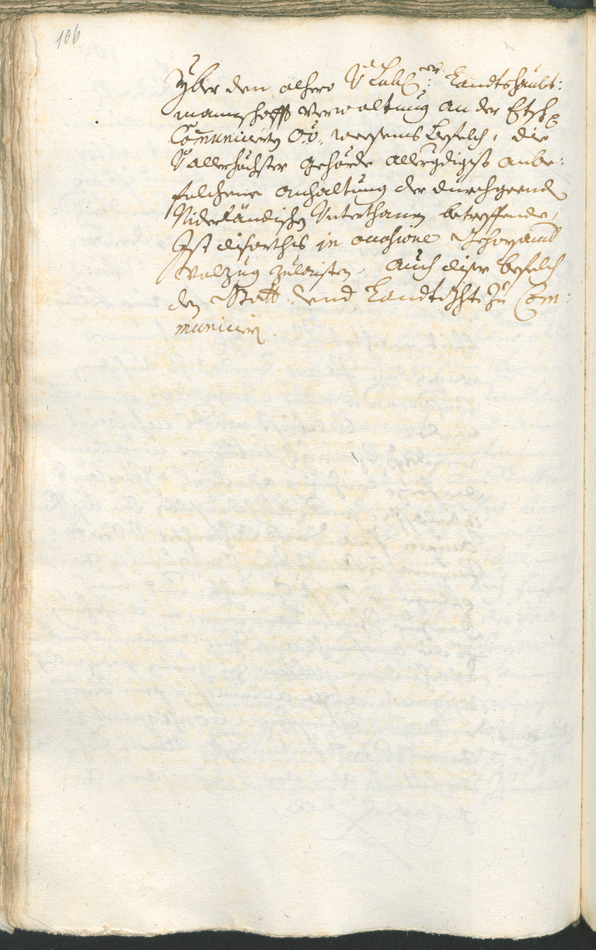 106
Yber den alhero V. Löbl: Landtshaubt:
manschafft Verwaltung an der Etsch
Communicirten O:Ö: wesens Befelch, die
V allerhöchster gehörde allergdigist anbe:
folchene anhaltung der durchgeend
Niderländischen Unterthanen betreffende,
Ist disorths in occasione gehorsamb
Volzug zulaisten, Auch diser befelch
den Statt und Landtgricht zu Com:
municirn.